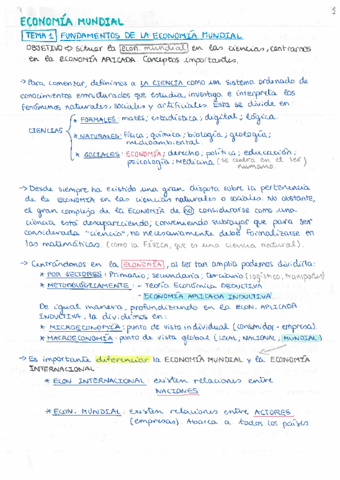 ECONOMÍA MUNDIAL
TEMA 1 FUNDAMENTOS DE LA ECONOMÍA MUNDIAL
OBJETIVO ⇒ Situar la econ. mundial en las ciencias, centrarnos
en la ECONOMÍA APLICADA. Conceptos importantes.
→ Para comenzar, definimos a LA CIENCIA como un sistema ordenado de
conocimientos estructurados que estudia, investiga e interpreta los
fenómenos naturales, sociales y artificiales. Esta se divide en:
* FORMALES: mates; estadística; digital; lógica
CIENCIAS * NATURALES: Física; química; biología; geología;
medioambiental
* SOCIALES: ECONOMÍA; derecho; política; educación;
psicología; Medicina (se centra en el ser
humano)
→ Desde siempre ha existido una gran disputa sobre la pertenencia
de la ECONOMÍA en las ciencias naturales o sociales. No obstante,
el gran complejo de la ECONOMÍA de no considerarse como una
ciencia está desapareciendo, conviniendo subrayar que para ser
considerada "ciencia", no necesariamente debe formalizarse en
las matemáticas. (como la FÍSICA, que es una ciencia natural).
→ Centrándonos en la ECONOMÍA, al ser tan amplia podemos dividirla:
* POR SECTORES: Primario, secundario; terciario (logística, transportes)
* METODOLÓGICAMENTE: - Teoría Económica DEDUCTIVA
- ECONOMÍA APLICADA INDUCTIVA
De igual manera, profundizando en la ECON. APLICADA
INDUCTIVA, la dividimos en:
* MICROECONOMÍA: punto de vista individual (consumidor - empresa).
* MACROECONOMÍA: punto de vista global (LOCAL, NACIONAL, MUNDIAL)
→ Es importante diferenciar la ECONOMÍA MUNDIAL y la ECONOMÍA
INTERNACIONAL
* ECON INTERNACIONAL: existen relaciones entre
NACIONES
* ECON. MUNDIAL: existen relaciones entre ACTORES
(empresas). Abarca a todos los países.